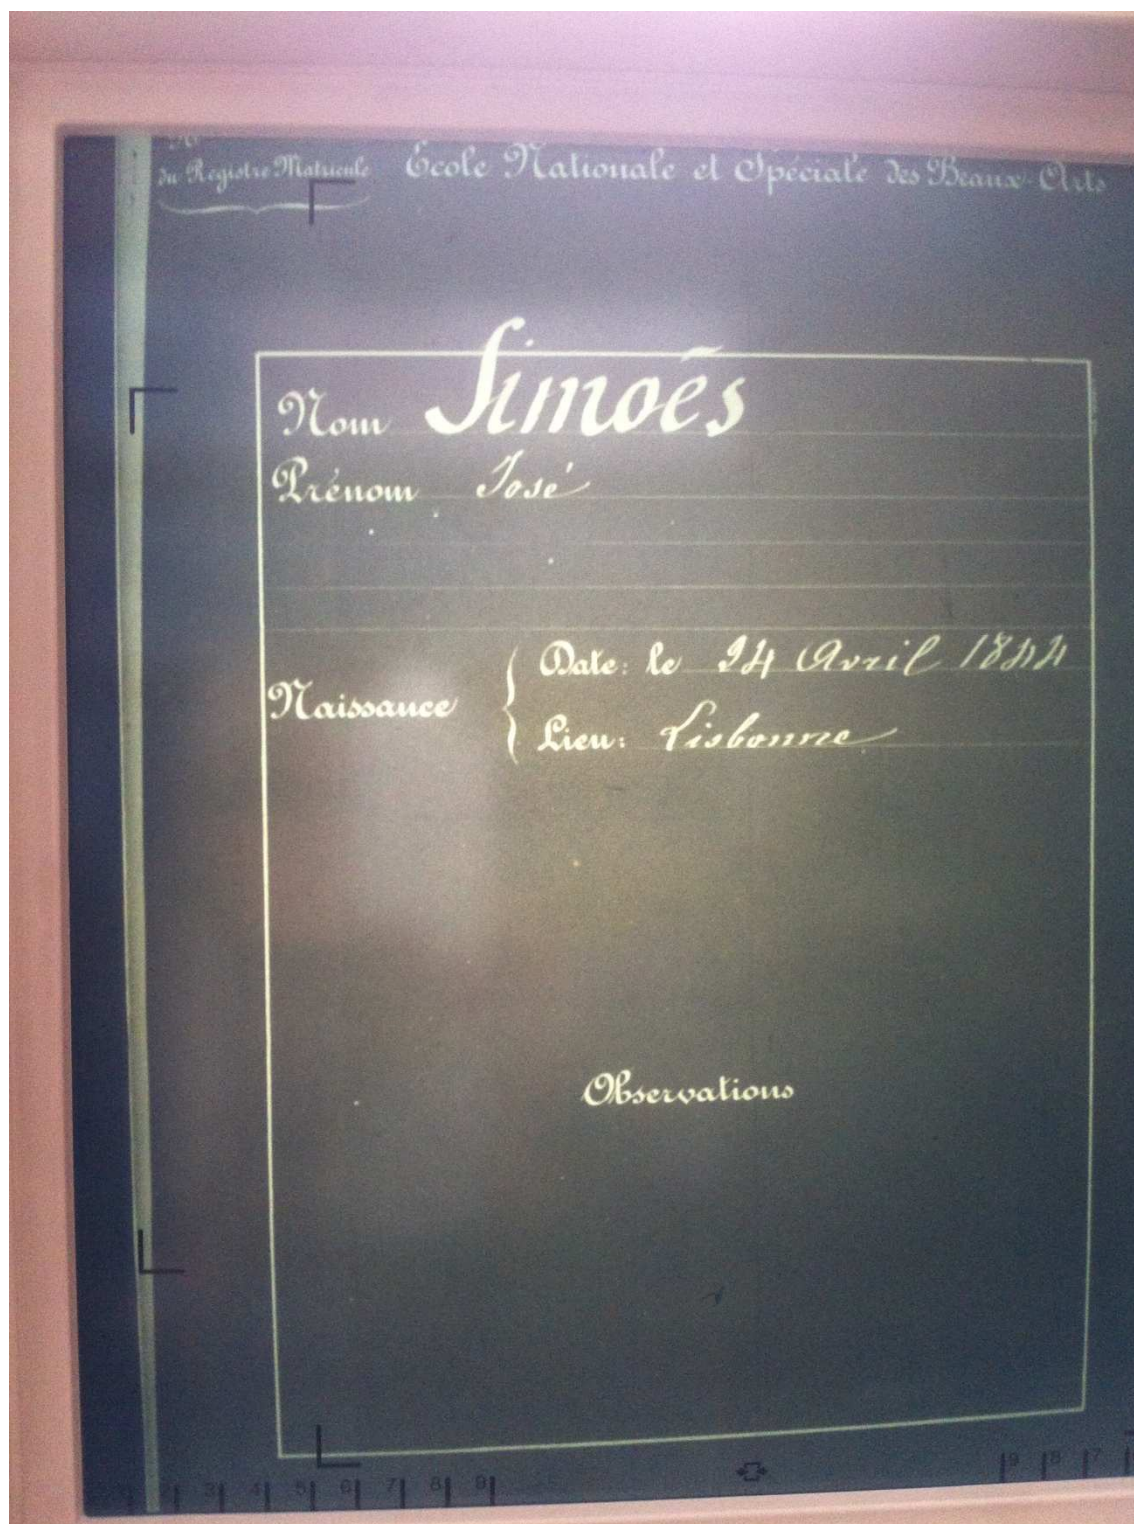 du Registre Matricule
École Nationale et Spéciale des Beaux-Arts
Nom Simoẽs
Prénom José
Naissance
Date: le 24 Avril 1844
Lieu: Lisbonne
Observations
2 3 4 5 6 7 8 9
9 8 7